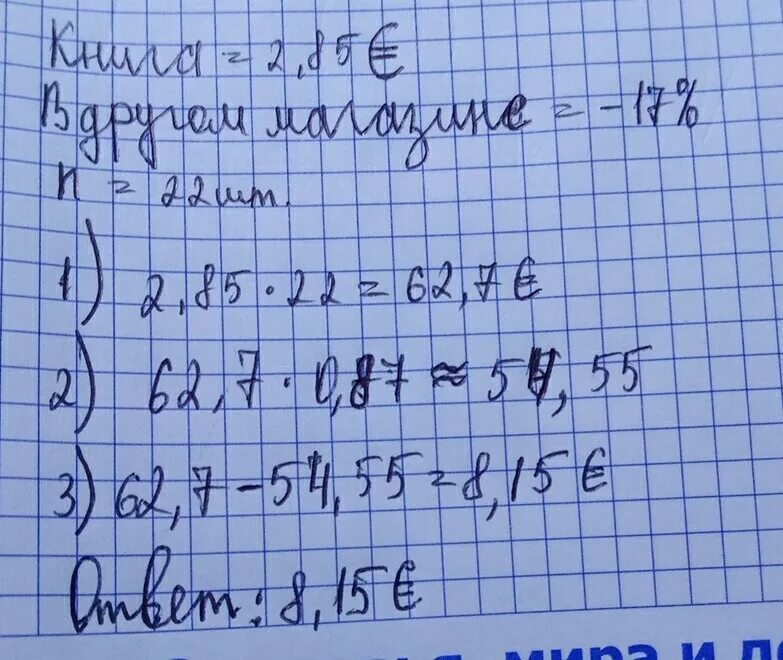 Книга = 2,85 €
В другом магазине = -17%
n = 22 шт.
1) 2,85 · 22 = 62,7 €
2) 62,7 · 0,87 ≈ 54,55
3) 62,7 - 54,55 = 8,15 €
Ответ: 8,15 €
мира и